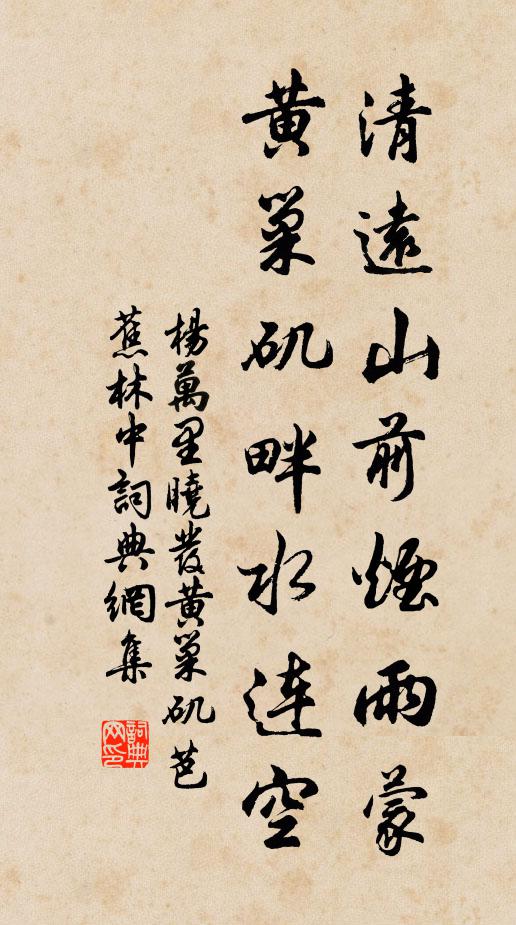 清遠山前煙雨蒙
黄巢矶畔水連空
楊萬里曉發黄巢矶芭
蕉林中詞典網集
詞典網印